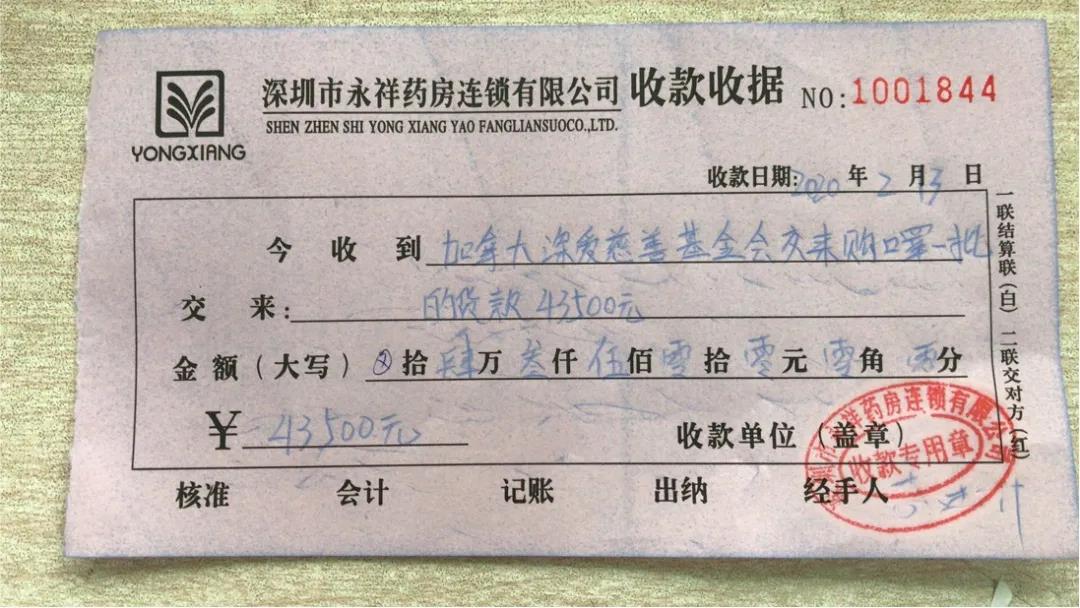 深圳市永祥药房连锁有限公司 收款收据 NO:1001844
SHEN ZHEN SHI YONG XIANG YAO FANGLIANSUOCO.,LTD.
YONGXIANG
收款日期:2020年2月13日
今收到 加拿大深爱慈善基金会交来购口罩一批
交来: 的货款43500元
金额(大写) ⊗拾肆万叁仟伍佰零拾零元零角零分
¥ 43500元 收款单位(盖章)
核准 会计 记账 出纳 经手人
一联结算联(白) 二联交对方(红)
深圳市永祥药房连锁有限公司
收款专用章